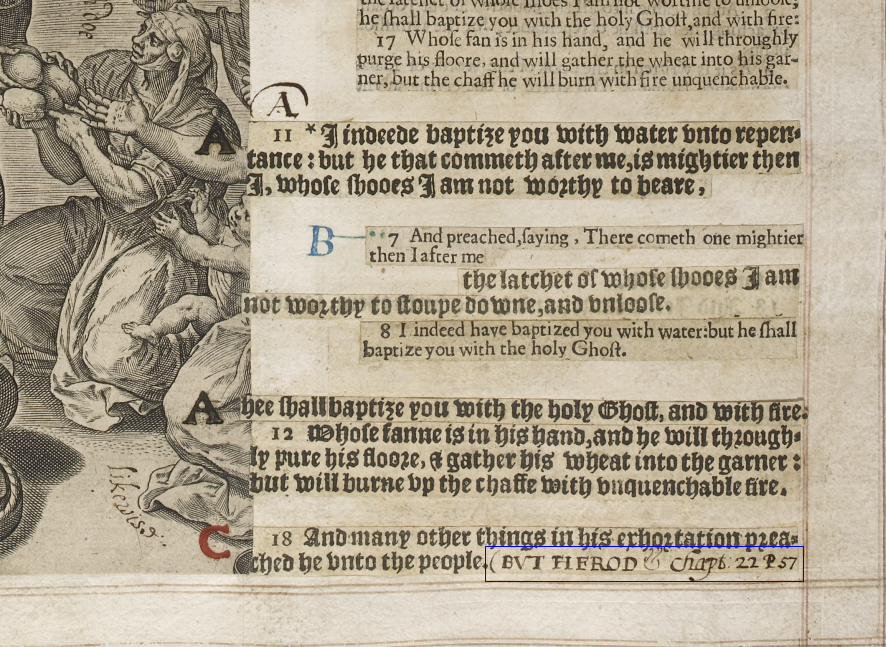 he ſhall baptize you with the holy Ghoſt, and with fire:
17 Whoſe fan is in his hand, and he will throughly
purge his floore, and will gather the wheat into his gar-
ner, but the chaff he will burn with fire unquenchable.
A
A 11 *I indeede baptize you with water vnto repen-
tance: but he that commeth after me, is mightier then
I, whoſe ſhooes I am not worthy to beare,
B 7 And preached, ſaying, There cometh one mightier
then I after me
the latchet of whoſe ſhooes I am
not worthy to ſtoupe downe, and vnlooſe.
8 I indeed have baptized you with water: but he ſhall
baptize you with the holy Ghoſt.
A hee ſhall baptize you with the holy Ghoſt, and with fire.
12 Whoſe fanne is in his hand, and he will through-
ly pure his floore, & gather his wheat into the garner:
but will burne vp the chaffe with vnquenchable fire.
likewise
C 18 And many other things in his exhortation prea-
ched he vnto the people. (BVT HEROD &c chapt. 22 P 57